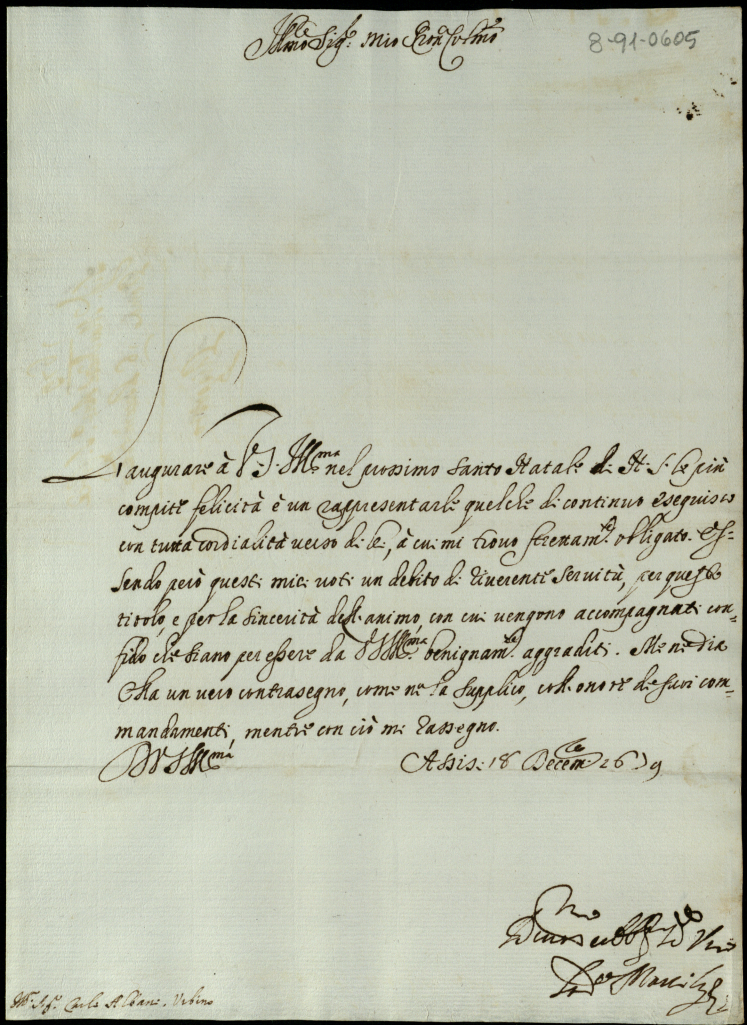 Ill.mo Sig.r mio Pron Col.mo
8-91-0605
L'augurare à V. S. Ill.ma nel prossimo Santo Natale di N. S. le più
compite felicità è un rappresentarle quelche di continuo eseguisco
con tutta cordialità verso di lei, à cui mi trovo strettam.te obligato. Es=
sendo però questi miei voti un debito di riverente servitù, per questo
titolo, e per la sincerità dell'animo, con cui vengono accompagnati con=
fido che siano per essere da V S Ill.ma benignam.te aggraditi. Me ne dia
Ella un vero contrasegno, come ne la supplico, coll'onore de suoi com=
mandamenti, mentre con ciò mi rassegno.
Di V S Ill.ma
Assisi 18 Decem.
Ill. Sig. Carlo Albani. Urbino